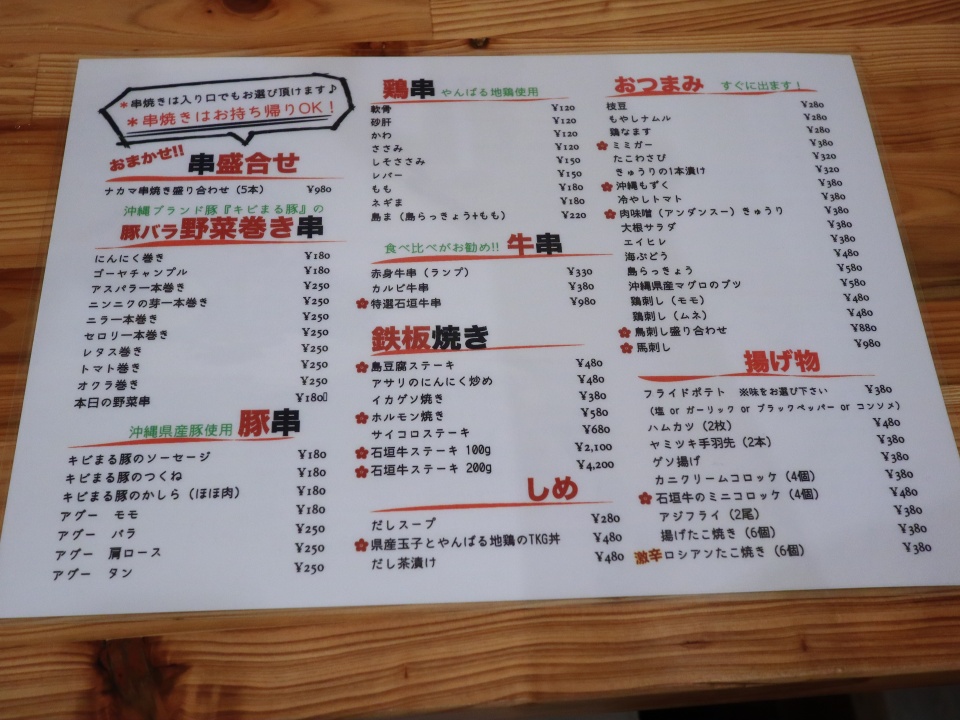 ＊串焼きは入り口でもお選び頂けます♪
＊串焼きはお持ち帰りOK！
おまかせ!! 串盛合せ
ナカマ串焼き盛り合わせ（5本） ¥980
沖縄ブランド豚『キビまる豚』の
豚バラ野菜巻き串
にんにく巻き ¥180
ゴーヤチャンプル ¥180
アスパラ一本巻き ¥250
ニンニクの芽一本巻き ¥250
ニラ一本巻き ¥250
セロリ一本巻き ¥250
レタス巻き ¥250
トマト巻き ¥250
オクラ巻き ¥250
本日の野菜串 ¥180
沖縄県産豚使用 豚串
キビまる豚のソーセージ ¥180
キビまる豚のつくね ¥180
キビまる豚のかしら（ほほ肉） ¥180
アグー モモ ¥180
アグー バラ ¥250
アグー 肩ロース ¥250
アグー タン ¥250
鶏串 やんばる地鶏使用
軟骨 ¥120
砂肝 ¥120
かわ ¥120
ささみ ¥120
しそささみ ¥150
レバー ¥150
もも ¥180
ネギま ¥180
島ま（島らっきょう+もも） ¥220
食べ比べがお勧め!! 牛串
赤身牛串（ランプ） ¥330
カルビ牛串 ¥380
特選石垣牛串 ¥980
鉄板焼き
島豆腐ステーキ ¥480
アサリのにんにく炒め ¥480
イカゲソ焼き ¥380
ホルモン焼き ¥580
サイコロステーキ ¥680
石垣牛ステーキ 100g ¥2,100
石垣牛ステーキ 200g ¥4,200
しめ
だしスープ ¥280
県産玉子とやんばる地鶏のTKG丼 ¥480
だし茶漬け ¥480
おつまみ すぐに出ます！
枝豆 ¥280
もやしナムル ¥280
鶏なます ¥280
ミミガー ¥380
たこわさび ¥320
きゅうりの1本漬け ¥320
沖縄もずく ¥380
冷やしトマト ¥380
肉味噌（アンダンスー）きゅうり ¥380
大根サラダ ¥380
エイヒレ ¥380
海ぶどう ¥480
島らっきょう ¥580
沖縄県産マグロのブツ ¥580
鶏刺し（モモ） ¥480
鶏刺し（ムネ） ¥480
鳥刺し盛り合わせ ¥880
馬刺し ¥980
揚げ物
フライドポテト ※味をお選び下さい ¥380
（塩 or ガーリック or ブラックペッパー or コンソメ）
ハムカツ（2枚） ¥480
ヤミツキ手羽先（2本） ¥380
ゲソ揚げ ¥380
カニクリームコロッケ（4個） ¥380
石垣牛のミニコロッケ（4個） ¥480
アジフライ（2尾） ¥380
揚げたこ焼き（6個） ¥380
激辛ロシアンたこ焼き（6個） ¥380